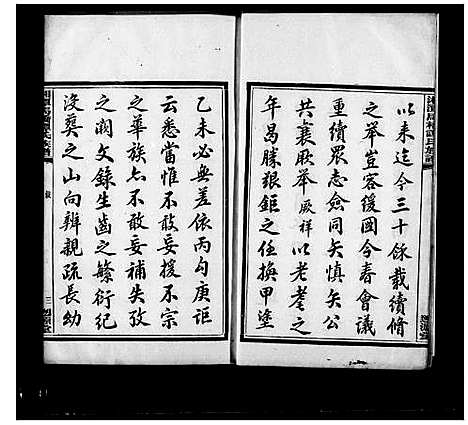 以来迄今三十餘載續脩
之舉豈容後圖今春會議
重續眾志僉同矢慎矢公
共襄厥舉厥祥以老耄之
年曷勝艱鉅之任換甲塗
乙未必無差依丙勾庚詎
云悉當惟不敢妄援不宗
之華族亦不敢妄補失攷
之闕文錄生齒之繁衍紀
沒葬之山向辨親疏長幼
三